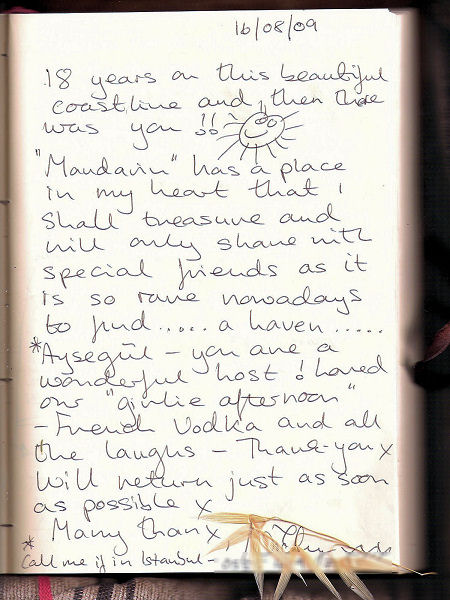 16/08/09
18 years on this beautiful
coastline and then there
was you !!
"Mandarin" has a place
in my heart that I
shall treasure and
will only share with
special friends as it
is so rare nowadays
to find ..... a haven .....
*Aysegül - you are a
wonderful host! Loved
our "girlie afternoon"
- French Vodka and all
the laughs - Thank-you x
Will return just as soon
as possible x
Many thanx
*
Call me if in Istanbul -